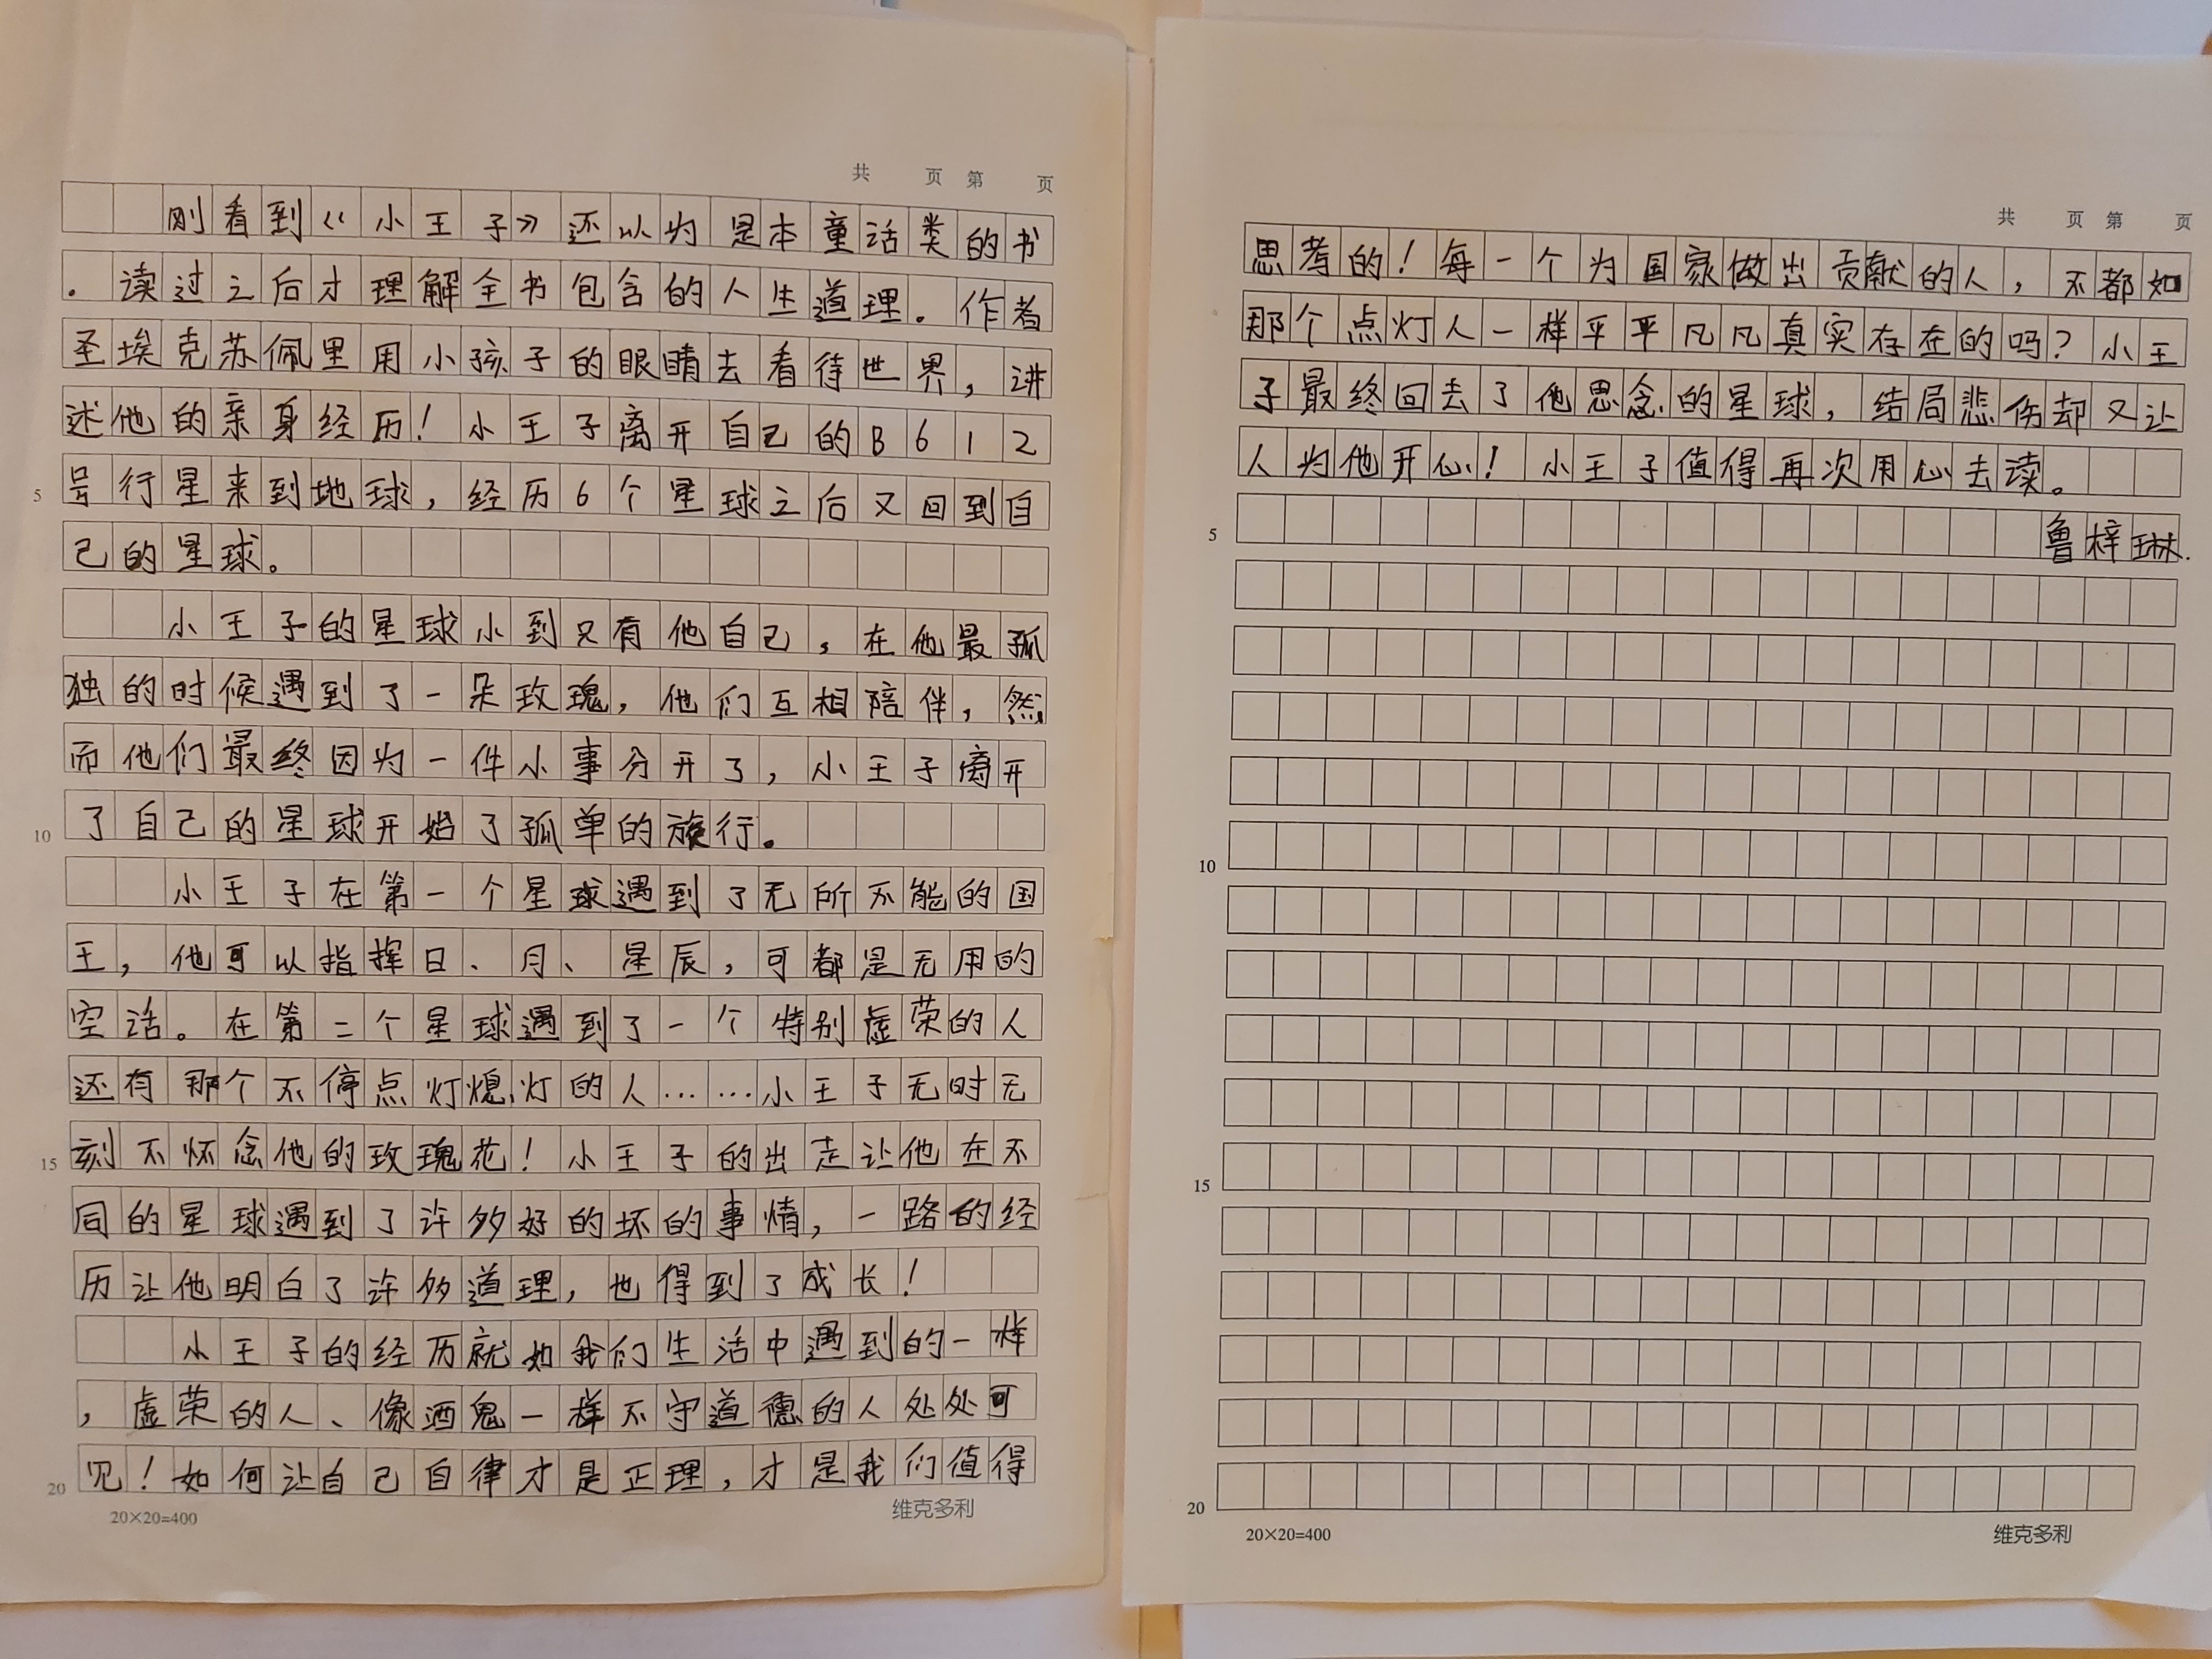 共 页 第 页
刚看到《小王子》还以为是本童话类的书
。读过之后才理解全书包含的人生道理。作者
圣埃克苏佩里用小孩子的眼睛去看待世界，讲
述他的亲身经历！小王子离开自己的B612
号行星来到地球，经历6个星球之后又回到自
5
己的星球。
小王子的星球小到只有他自己，在他最孤
独的时候遇到了一朵玫瑰，他们互相陪伴，然
而他们最终因为一件小事分开了，小王子离开
了自己的星球开始了孤单的旅行。
10
小王子在第一个星球遇到了无所不能的国
王，他可以指挥日、月、星辰，可都是无用的
空话。在第二个星球遇到了一个特别虚荣的人
还有那个不停点灯熄灯的人……小王子无时无
刻不怀念他的玫瑰花！小王子的出走让他在不
15
同的星球遇到了许多好的坏的事情，一路的经
历让他明白了许多道理，也得到了成长！
小王子的经历就如我们生活中遇到的一样
，虚荣的人、像酒鬼一样不守道德的人处处可
见！如何让自己自律才是正理，才是我们值得
20
20×20=400
维克多利
共 页 第 页
思考的！每一个为国家做出贡献的人，不都如
那个点灯人一样平平凡凡真实存在的吗？小王
子最终回去了他思念的星球，结局悲伤却又让
人为他开心！小王子值得再次用心去读。
5
鲁梓琳.
10
15
20
20×20=400
维克多利